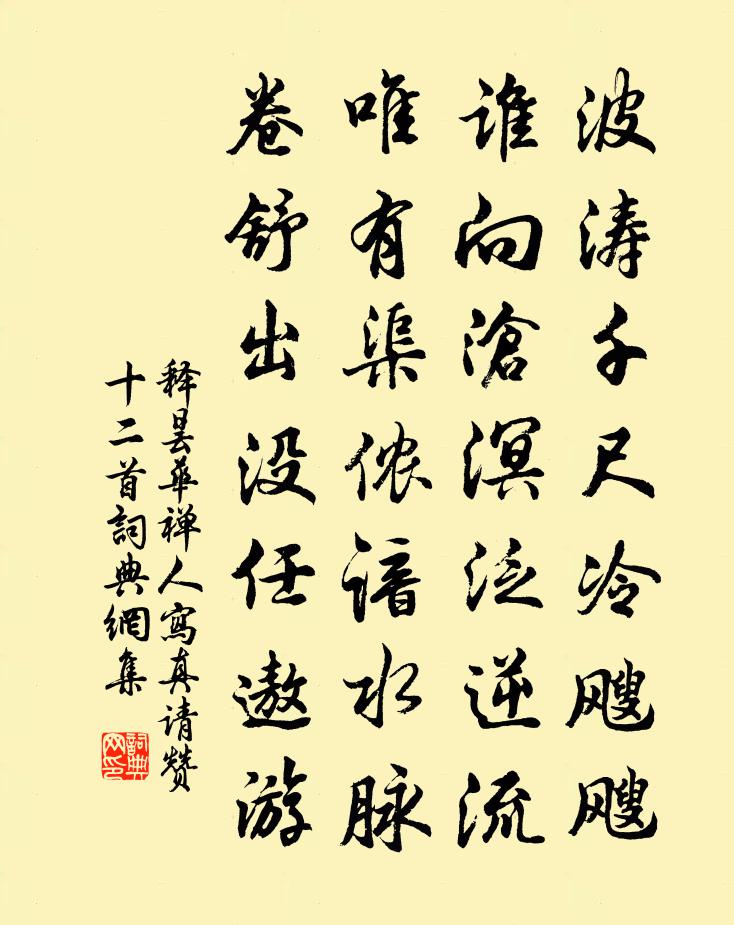 波涛千尺冷飕飕
谁向滄溟泛逆流
唯有渠侬谙水脉
卷舒出没任遨游
释昙华禅人寫真请赞
十二首詞典網集
詞典网印